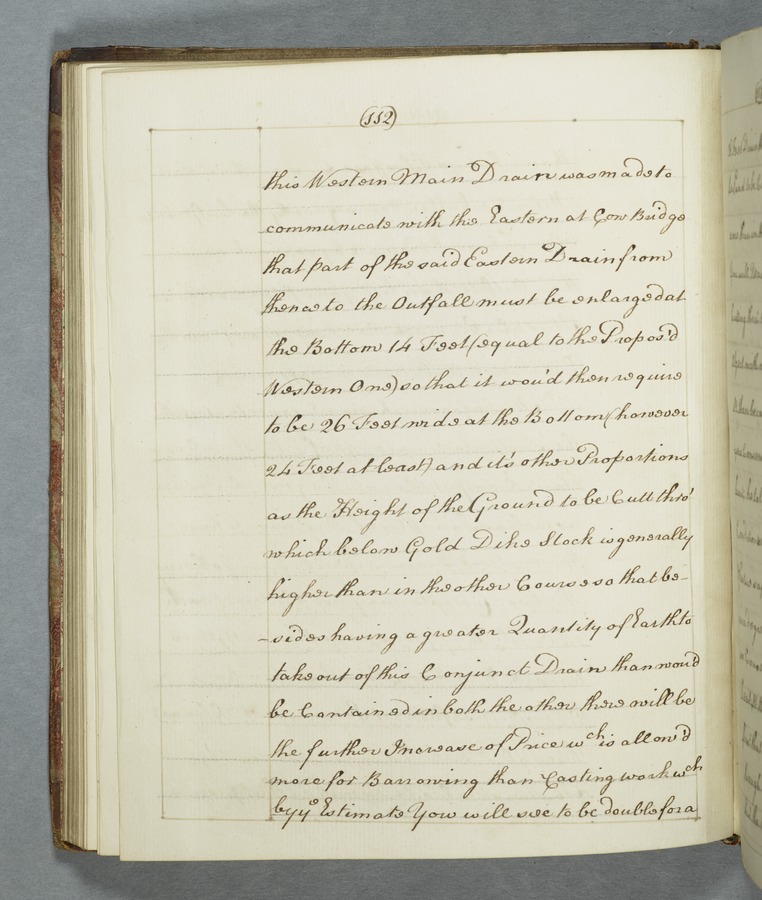 (112)
this Western Main Drain was made to
communicate with the Eastern at Cow Bridge
that part of the said Eastern Drain from
thence to the Outfall must be enlarged at
the Bottom 14 Feet (equal to the Propos'd
Western One) so that it wou'd then require
to be 26 Feet wide at the Bottom (however
24 Feet at least) and it's other Proportions
as the Height of the Ground to be Cutt thro'
which below Gold Dike Stock is generally
higher than in the other Course so that be-
-sides having a greater Quantity of Earth to
take out of this Conjunct Drain than wou'd
be Contained in both the other there will be
the further Increase of Price wch is allow'd
more for Barrowing than Casting work wch
by ye Estimate You will see to be double for a